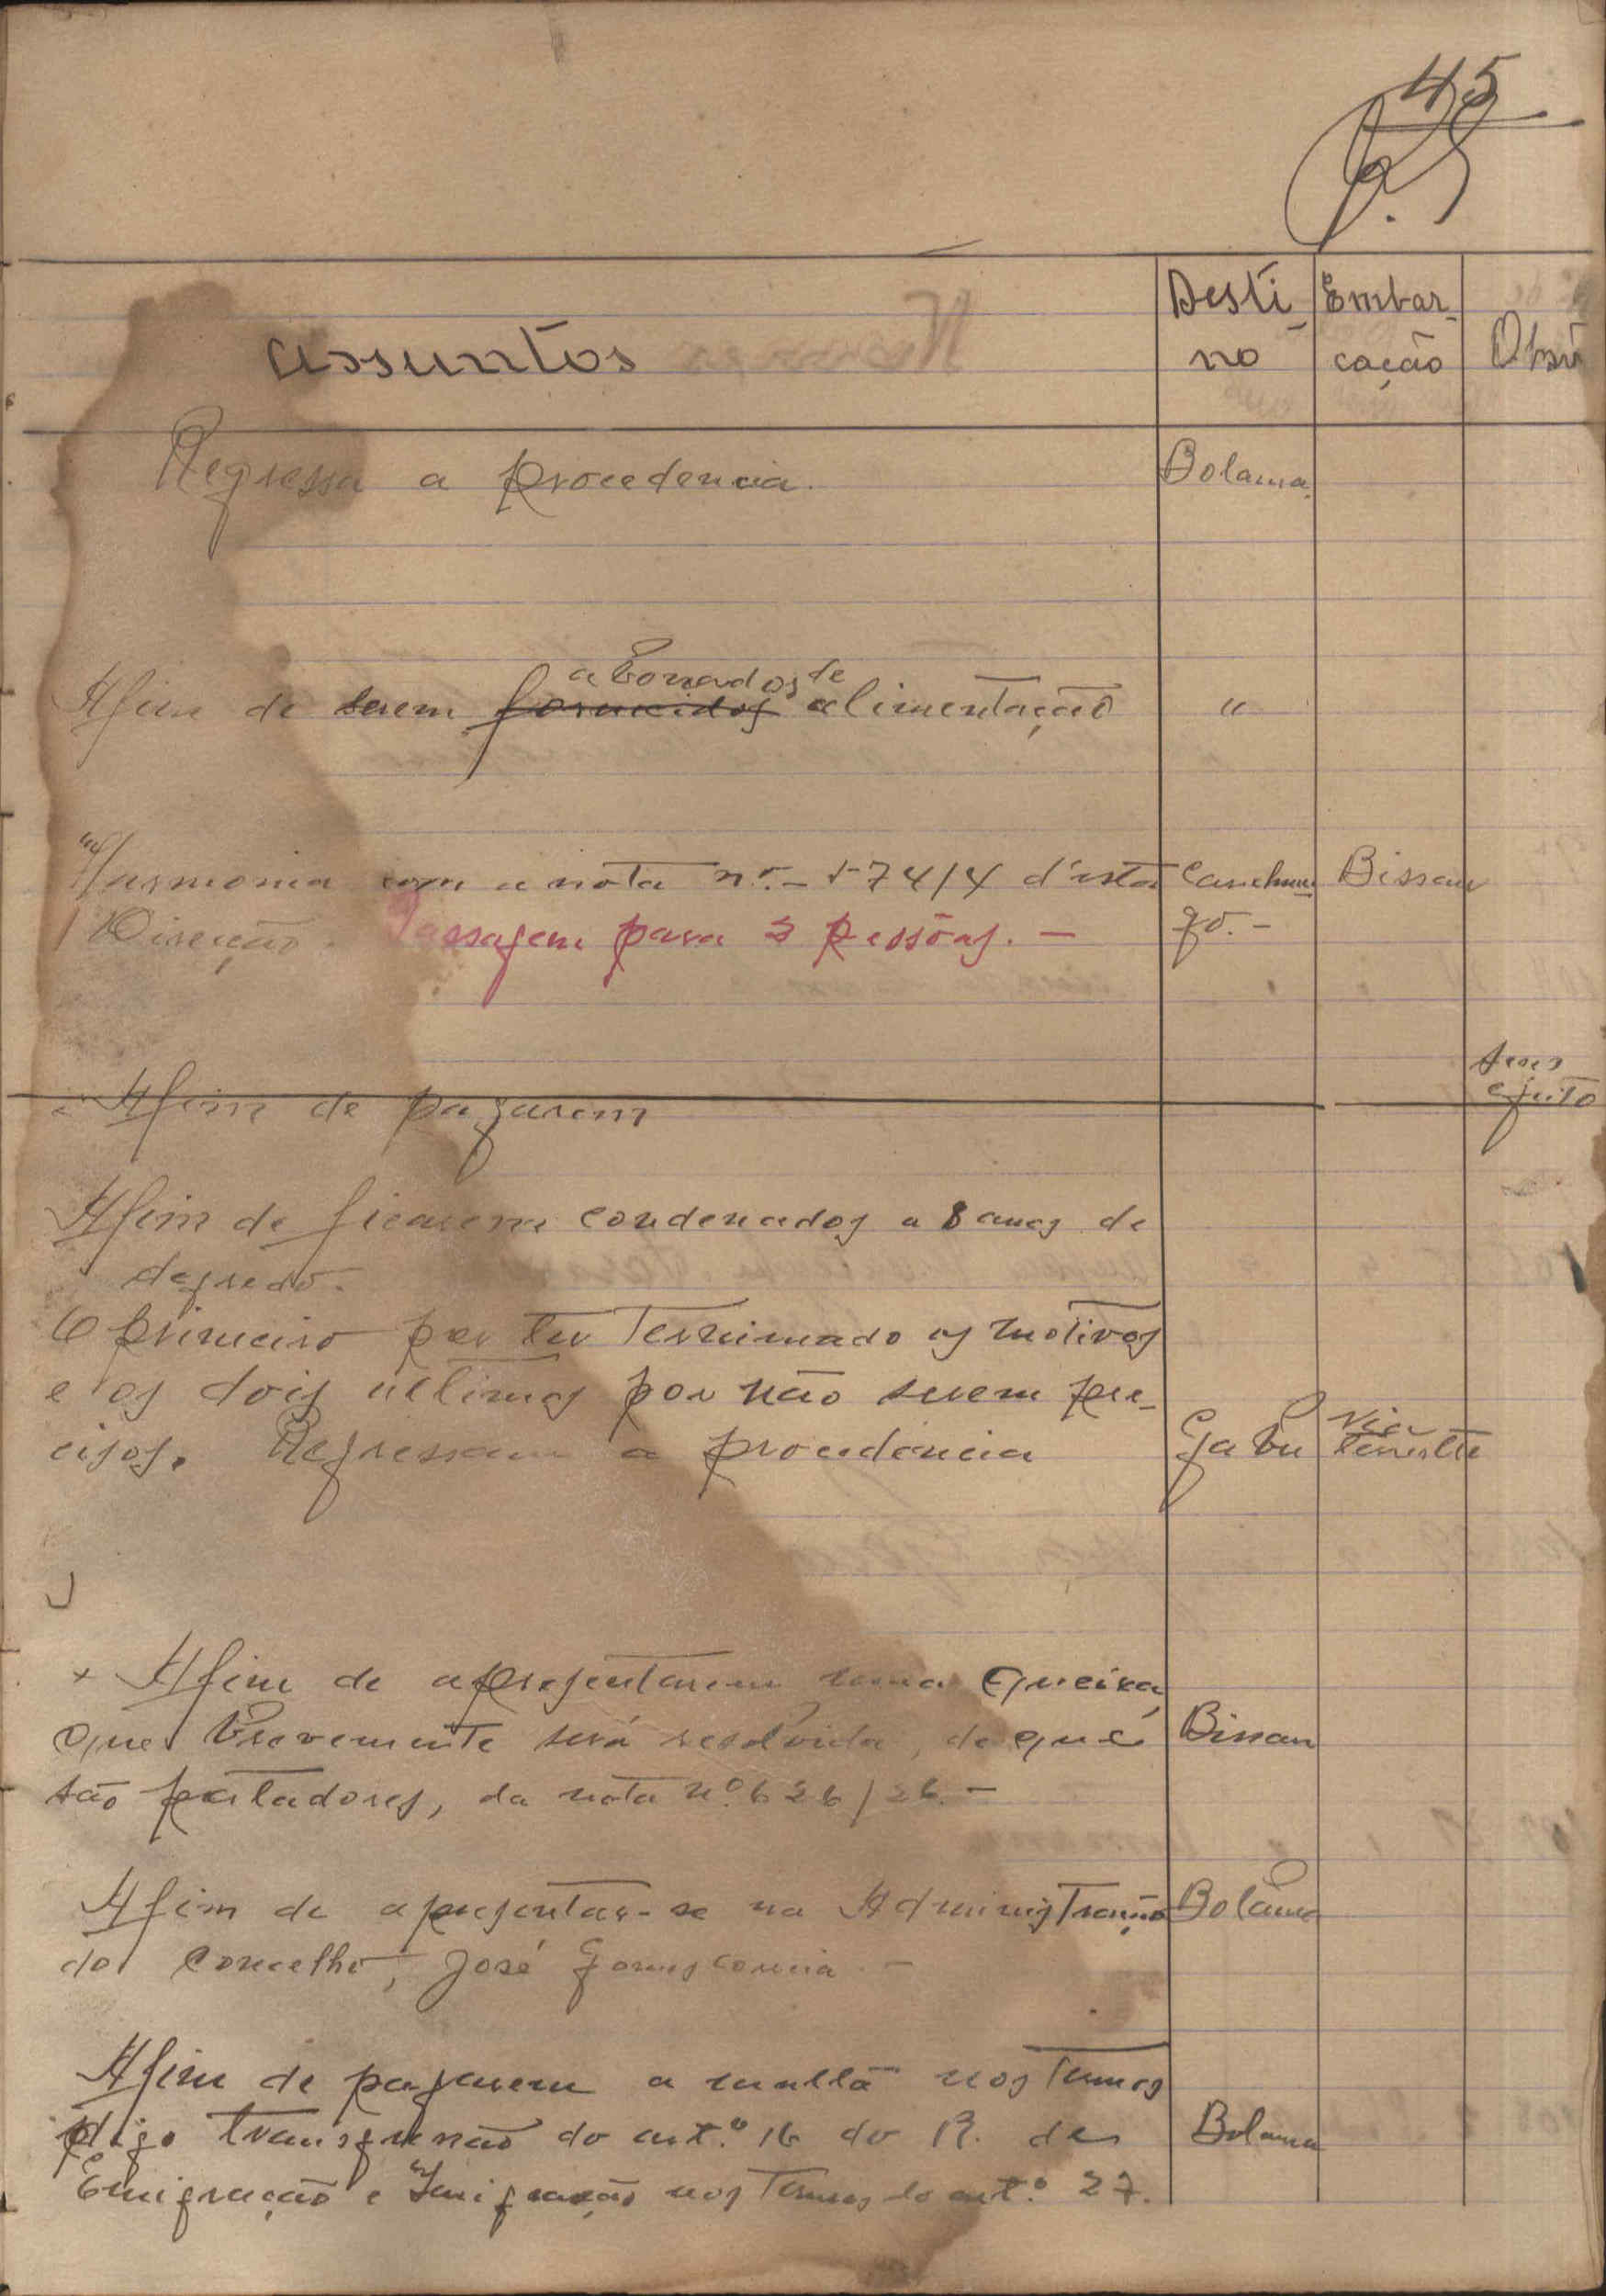 45
assuntos
Desti-
no
Embar-
cação
Regressa a procedencia.
Bolama.
abonados de
Afim de serem fornecidos alimentação
"
Harmonia com a nota n.º - 574/4 d'esta
Canchun
Bissau
Direcção. Passagem para 3 pessôas. -
go. -
Afim de pagarem
sem
efeito
Afim de ficarem condenados a 8 anos de
degredo.
O primeiro por ter terminado os motivos
e os dois ultimos por não serem pre-
cisos. Regressam a procedencia
Gabu
Via
terrestre
Afim de apresentarem uma queixa
que brevemente será resolvida, de que
Bissau
são portadores, da nota nº 626/26. -
Afim de apresentar-se na Administração
Bolama
do Concelho, José Gomes Correia. -
Afim de pagarem a multa nos termos
digo transgressão do art.º 16 do R. de
Bolama
Emigração e Imigração nos termos do art.º 27.